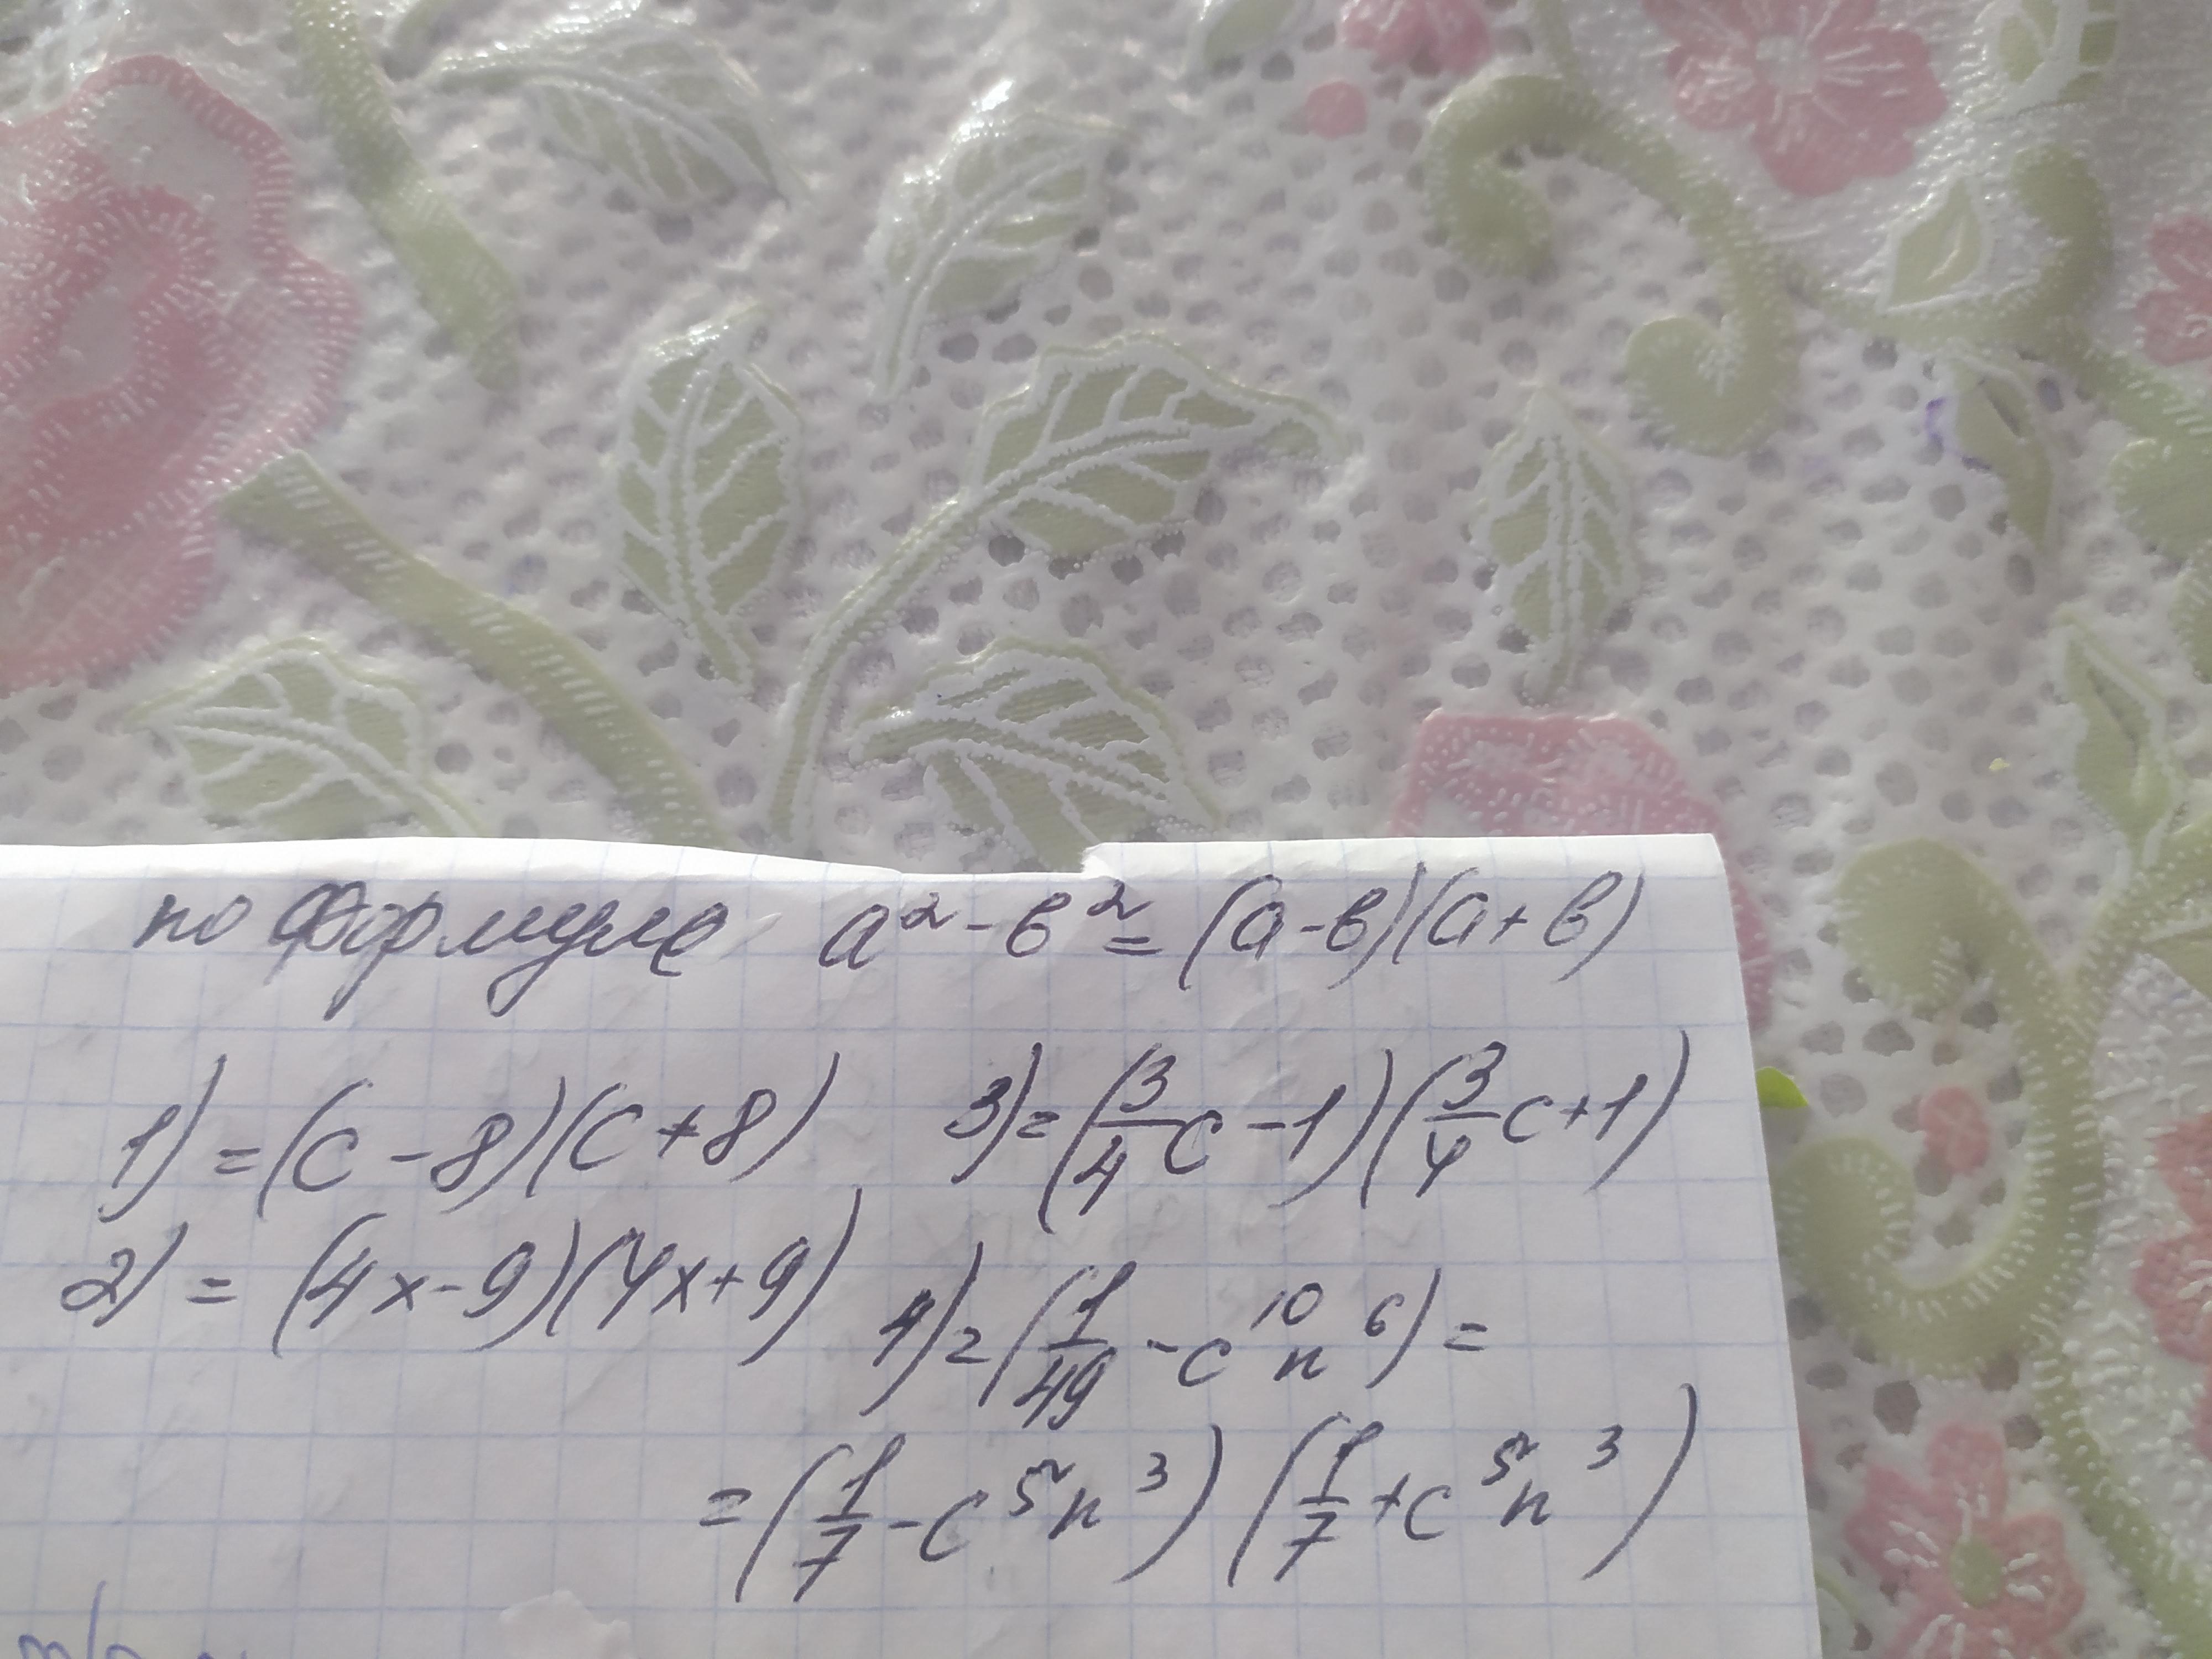 по формуле a² - b² = (a - b)(a + b)
1) = (c - 8)(c + 8)
2) = (4x - 9)(4x + 9)
3) = (3/4 c - 1)(3/4 c + 1)
4) = (1/49 - c¹⁰n⁶) =
= (1/7 - c⁵n³)(1/7 + c⁵n³)